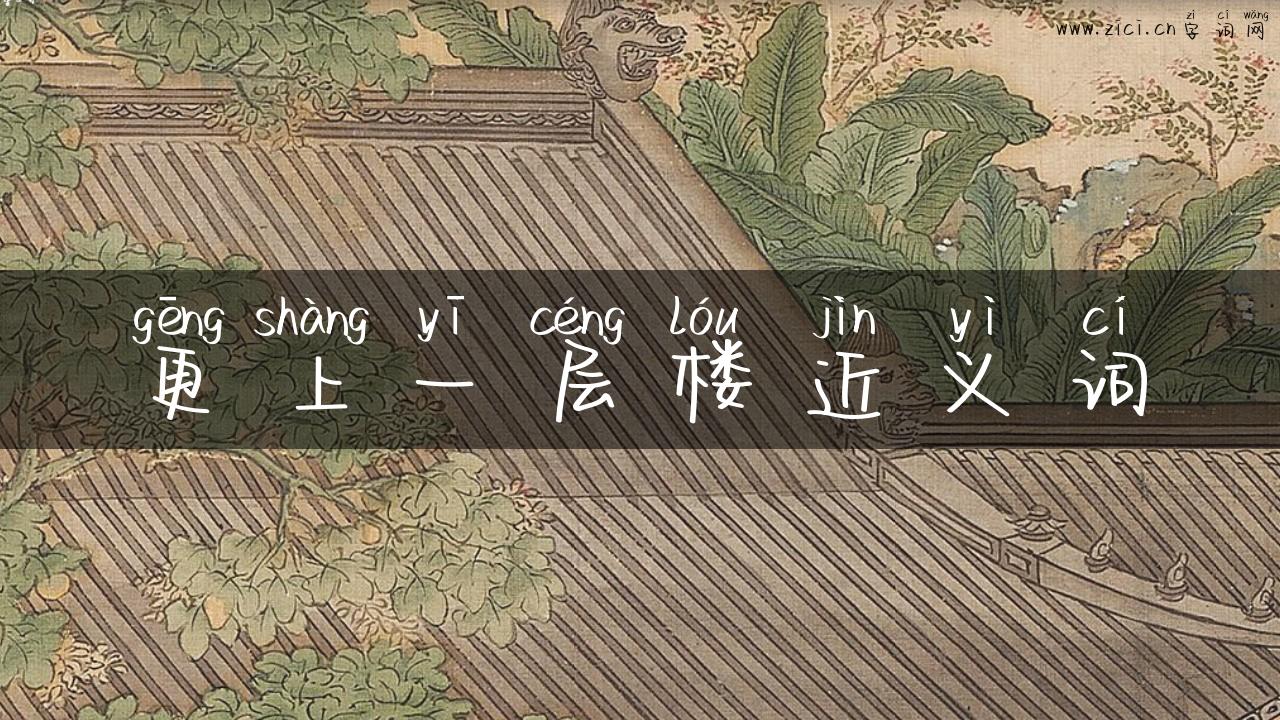 zì cí wǎng
www.zici.cn 字词网
gēng shàng yī céng lóu jìn yì cí
更上一层楼近义词